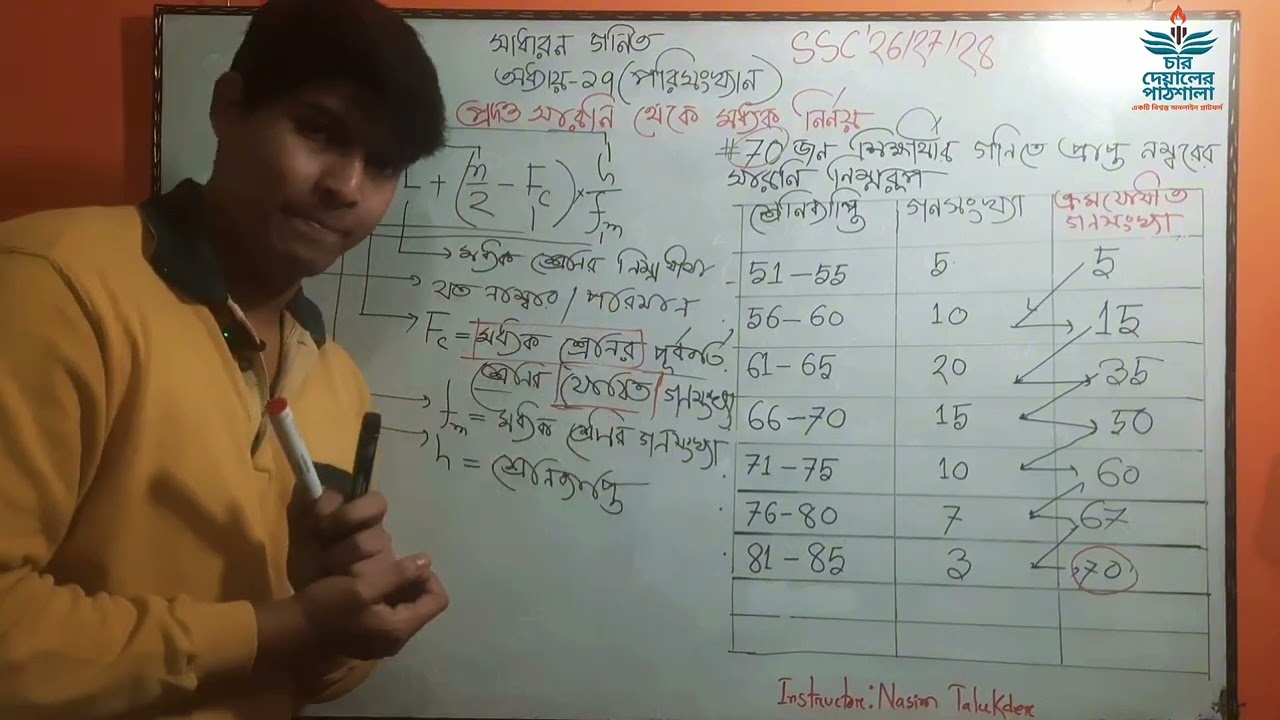 সাধারন গনিত
SSC'26/27/28
অধ্যায়-১৭ (পরিসংখ্যান)
প্রদত্ত সারনি থেকে মধ্যক নির্নয়
চার
দেয়ালের
পাঠশালা
একটি বিশ্বস্ত অনলাইন প্লাটফর্ম
L + (n/2 - Fc) × h/fm
মধ্যক শ্রেনির নিম্নসীমা
যত নাম্বার / পরিমান
Fc = মধ্যক শ্রেনির পূর্ববর্তি
শ্রেনির যোজিত গনসংখ্যা
fm = মধ্যক শ্রেনির গনসংখ্যা
h = শ্রেনিব্যাপ্তি
#70 জন শিক্ষার্থীর গনিতে প্রাপ্ত নম্বরের
সারনি নিম্নরূপ
শ্রেনিব্যাপ্তি গনসংখ্যা ক্রমযোজিত গনসংখ্যা
51-55 5 5
56-60 10 15
61-65 20 35
66-70 15 50
71-75 10 60
76-80 7 67
81-85 3 70
Instructor: Nasim Talukder